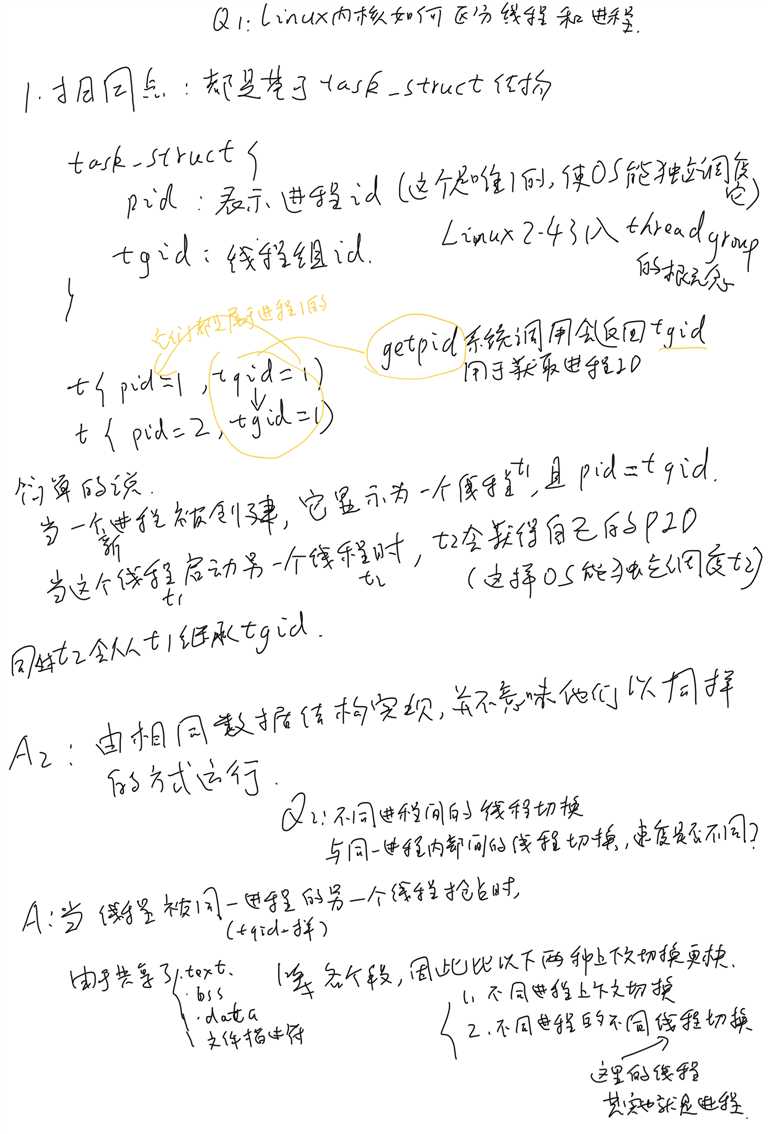 Q1: Linux内核如何区分线程和进程.
1. 相同点: 都是基于task_struct结构
task_struct {
pid: 表示进程id (这个是唯1的, 使OS能独立调度它)
tgid: 线程组id.
Linux 2.4引入 thread group
的概念
}
t1 t2都是属于进程1的
getpid系统调用会返回tgid
用于获取进程ID
t { pid=1, tgid=1 }
t { pid=2, tgid=1 }
简单的说.
当一个新进程被创建, 它显示为一个线程t1, 且 pid = tgid.
当这个线程t1启动另一个线程t2时, t2会获得自己的PID
(这样OS能独立调度t2)
同样t2会从t1继承tgid.
A2: 由相同数据结构实现, 并不意味他们以相同样
的方式运行.
Q2: 不同进程间的线程切换
与同一进程内部间的线程切换, 速度是否不同?
A: 当线程被同一进程的另一个线程抢占时,
(tgid一样)
由于共享了 { .text. 等各个段, 因此比以下两种上下文切换更快.
.bss
.data
文件描述符
{ 1. 不同进程上下文切换
2. 不同进程的不同线程切换
这里的线程
其实也就是进程.